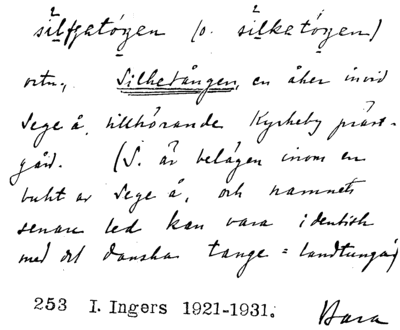 silfgatóṇen (o. silkatóṇen)
ortn., Silketången, en åker invid
Sege å, tillhörande Kyrkheby präst-
gård. (S. är belägen inom en
bukt av Sege å, och namnets
senare led kan vara identisk
med det danska tange = landtunga)
253 I. Ingers 1921-1931. Bara